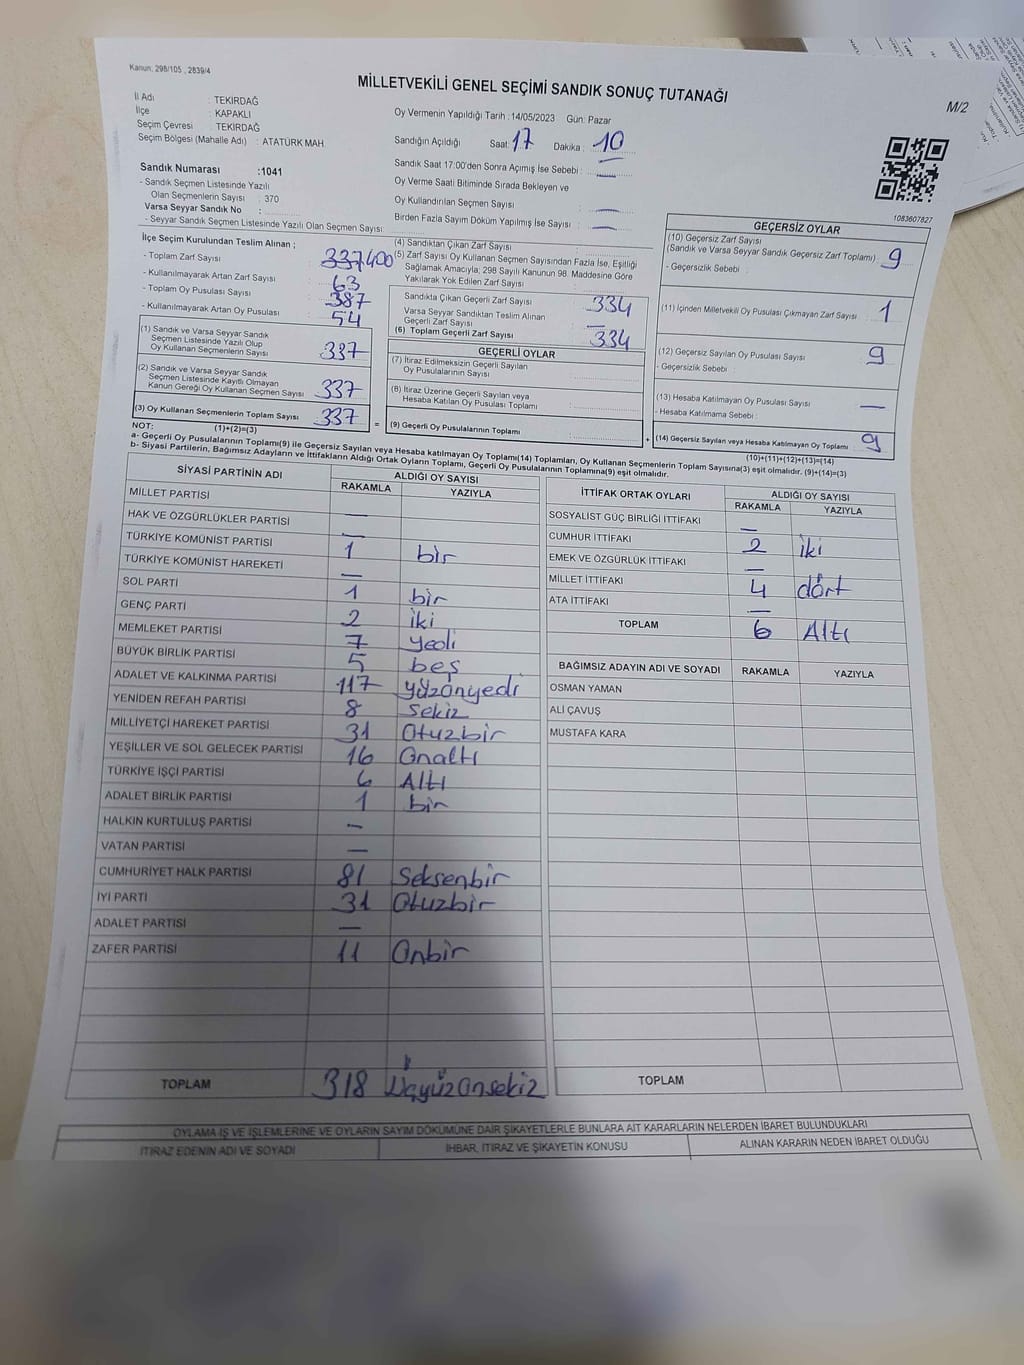 Kanun: 298/105 , 2839/4
MİLLETVEKİLİ GENEL SEÇİMİ SANDIK SONUÇ TUTANAĞI
M/2
İl Adı : TEKİRDAĞ
İlçe : KAPAKLI
Seçim Çevresi : TEKİRDAĞ
Seçim Bölgesi (Mahalle Adı) : ATATÜRK MAH.
Oy Vermenin Yapıldığı Tarih : 14/05/2023 Gün: Pazar
Sandığın Açıldığı Saat: 17 Dakika : 10
Sandık Saat 17:00'den Sonra Açımış İse Sebebi : —
Oy Verme Saati Bitiminde Sırada Bekleyen ve
Oy Kullandırılan Seçmen Sayısı : —
Birden Fazla Sayım Döküm Yapılmış İse Sayısı : —
Sandık Numarası :1041
- Sandık Seçmen Listesinde Yazılı
Olan Seçmenlerin Sayısı : 370
Varsa Seyyar Sandık No :
- Seyyar Sandık Seçmen Listesinde Yazılı Olan Seçmen Sayısı :
1083607827
İlçe Seçim Kurulundan Teslim Alınan ;
- Toplam Zarf Sayısı : 337 400
- Kullanılmayarak Artan Zarf Sayısı : 63
- Toplam Oy Pusulası Sayısı : 387
- Kullanılmayarak Artan Oy Pusulası : 54
(1) Sandık ve Varsa Seyyar Sandık
Seçmen Listesinde Yazılı Olup
Oy Kullanan Seçmenlerin Sayısı : 337
(2) Sandık ve Varsa Seyyar Sandık
Seçmen Listesinde Kayıtlı Olmayan
Kanun Gereği Oy Kullanan Seçmen Sayısı : 337
(3) Oy Kullanan Seçmenlerin Toplam Sayısı : 337
(4) Sandıktan Çıkan Zarf Sayısı :
(5) Zarf Sayısı Oy Kullanan Seçmen Sayısından Fazla İse, Eşitliği
Sağlamak Amacıyla; 298 Sayılı Kanunun 98. Maddesine Göre
Yakılarak Yok Edilen Zarf Sayısı :
Sandıkta Çıkan Geçerli Zarf Sayısı : 334
Varsa Seyyar Sandıktan Teslim Alınan
Geçerli Zarf Sayısı : —
(6) Toplam Geçerli Zarf Sayısı : 334
GEÇERLİ OYLAR
(7) İtiraz Edilmeksizin Geçerli Sayılan
Oy Pusulalarının Sayısı :
(8) İtiraz Üzerine Geçerli Sayılan veya
Hesaba Katılan Oy Pusulası Toplamı :
= (9) Geçerli Oy Pusulalarının Toplamı : +
GEÇERSİZ OYLAR
(10) Geçersiz Zarf Sayısı
(Sandık ve Varsa Seyyar Sandık Geçersiz Zarf Toplamı) : 9
- Geçersizlik Sebebi :
(11) İçinden Milletvekili Oy Pusulası Çıkmayan Zarf Sayısı : 1
(12) Geçersiz Sayılan Oy Pusulası Sayısı : 9
- Geçersizlik Sebebi :
(13) Hesaba Katılmayan Oy Pusulası Sayısı : —
- Hesaba Katılmama Sebebi :
(14) Geçersiz Sayılan veya Hesaba Katılmayan Oy Toplamı : 9
NOT: (1)+(2)=(3)
(10)+(11)+(12)+(13)=(14)
a- Geçerli Oy Pusulalarının Toplamı(9) ile Geçersiz Sayılan veya Hesaba katılmayan Oy Toplamı(14) Toplamları, Oy Kullanan Seçmenlerin Toplam Sayısına(3) eşit olmalıdır. (9)+(14)=(3)
b- Siyasi Partilerin, Bağımsız Adayların ve İttifakların Aldığı Ortak Oyların Toplamı, Geçerli Oy Pusulalarının Toplamına(9) eşit olmalıdır.
SİYASİ PARTİNİN ADI ALDIĞI OY SAYISI
RAKAMLA YAZIYLA
MİLLET PARTİSİ
HAK VE ÖZGÜRLÜKLER PARTİSİ —
TÜRKİYE KOMÜNİST PARTİSİ —
TÜRKİYE KOMÜNİST HAREKETİ 1 bir
SOL PARTİ —
GENÇ PARTİ 1 bir
MEMLEKET PARTİSİ 2 iki
BÜYÜK BİRLİK PARTİSİ 7 yedi
ADALET VE KALKINMA PARTİSİ 5 beş
117 yüzonyedi
YENİDEN REFAH PARTİSİ 8 sekiz
MİLLİYETÇİ HAREKET PARTİSİ 31 Otuzbir
YEŞİLLER VE SOL GELECEK PARTİSİ 16 Onaltı
TÜRKİYE İŞÇİ PARTİSİ 6 Altı
ADALET BİRLİK PARTİSİ 1 bir
HALKIN KURTULUŞ PARTİSİ —
VATAN PARTİSİ —
CUMHURİYET HALK PARTİSİ 81 Seksenbir
İYİ PARTİ 31 Otuzbir
ADALET PARTİSİ —
ZAFER PARTİSİ 11 Onbir
TOPLAM 318 Üçyüzonsekiz
İTTİFAK ORTAK OYLARI ALDIĞI OY SAYISI
RAKAMLA YAZIYLA
SOSYALİST GÜÇ BİRLİĞİ İTTİFAKI —
CUMHUR İTTİFAKI 2 iki
EMEK VE ÖZGÜRLÜK İTTİFAKI —
MİLLET İTTİFAKI 4 dört
ATA İTTİFAKI —
TOPLAM 6 Altı
BAĞIMSIZ ADAYIN ADI VE SOYADI RAKAMLA YAZIYLA
OSMAN YAMAN
ALİ ÇAVUŞ
MUSTAFA KARA
TOPLAM
OYLAMA İŞ VE İŞLEMLERİNE VE OYLARIN SAYIM DÖKÜMÜNE DAİR ŞİKAYETLERLE BUNLARA AİT KARARLARIN NELERDEN İBARET BULUNDUKLARI
İTİRAZ EDENİN ADI VE SOYADI İHBAR, İTİRAZ VE ŞİKAYETİN KONUSU ALINAN KARARIN NEDEN İBARET OLDUĞU